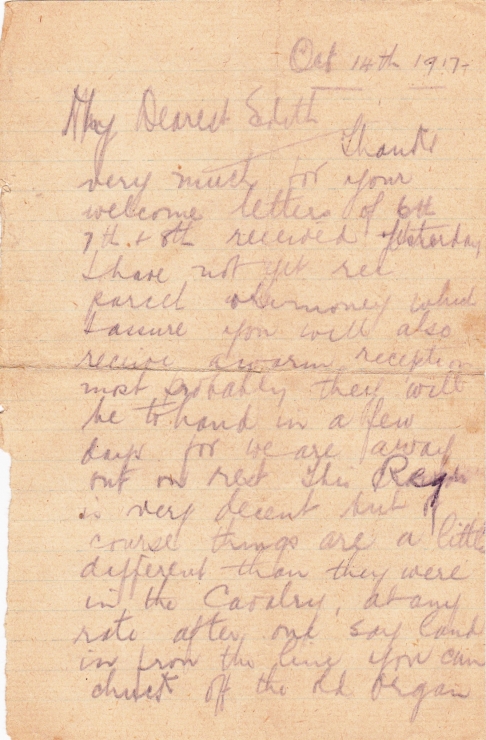 Oct 14th 1917
My Dearest Edith
Thanks
very much for your
welcome letters of 6th
7th & 8th received yesterday
I have not yet rec
parcel or money which
I assure you will also
receive a warm reception
most probably they will
be to hand in a few
days for we are away
out on rest this Regt
is very decent but of
course things are a little
different than they were
in the Cavalry, at any
rate after one say land
in from the line you can
chuck off the old organ